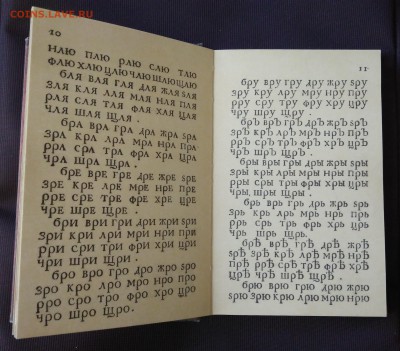 10
нлю плю рлю слю тлю
флю хлю цлю члю шлю щлю
бля вля гля для жля ѕля
зля кля лля мля нля пля
рля сля тля фля хля цля
чля шля щля .
бра вра гра дра жра ѕра
зра кра лра мра нра пра
рра сра тра фра хра цра
чра шра щра .
бре вре гре дре жре ѕре
зре кре лре мре нре пре
рре сре тре фре хре цре
чре шре щре .
бри ври гри дри жри ѕри
зри кри лри мри нри при
рри сри три фри хри цри
чри шри щри .
бро вро гро дро жро ѕро
зро кро лро мро нро про
рро сро тро фро хро цро
чро шро щро .
11
бру вру гру дру жру ѕру
зру кру лру мру нру пру
рру сру тру фру хру цру
чру шру щру .
бръ връ гръ дръ жръ ѕръ
зръ кръ лръ мръ нръ пръ
рръ сръ тръ фръ хръ цръ
чръ шръ щръ .
бры вры гры дры жры ѕры
зры кры лры мры нры пры
рры сры тры фры хры цры
чры шры щры .
брь врь грь дрь жрь ѕрь
зрь крь лрь мрь нрь прь
ррь срь трь фрь хрь црь
чрь шрь щрь .
брѣ врѣ грѣ дрѣ жрѣ ѕрѣ
зрѣ крѣ лрѣ мрѣ нрѣ прѣ
ррѣ срѣ трѣ фрѣ хрѣ црѣ
чрѣ шрѣ щрѣ .
брю врю грю дрю жрю
ѕрю зрю крю лрю мрю нрю
COINS.LAVE.RU